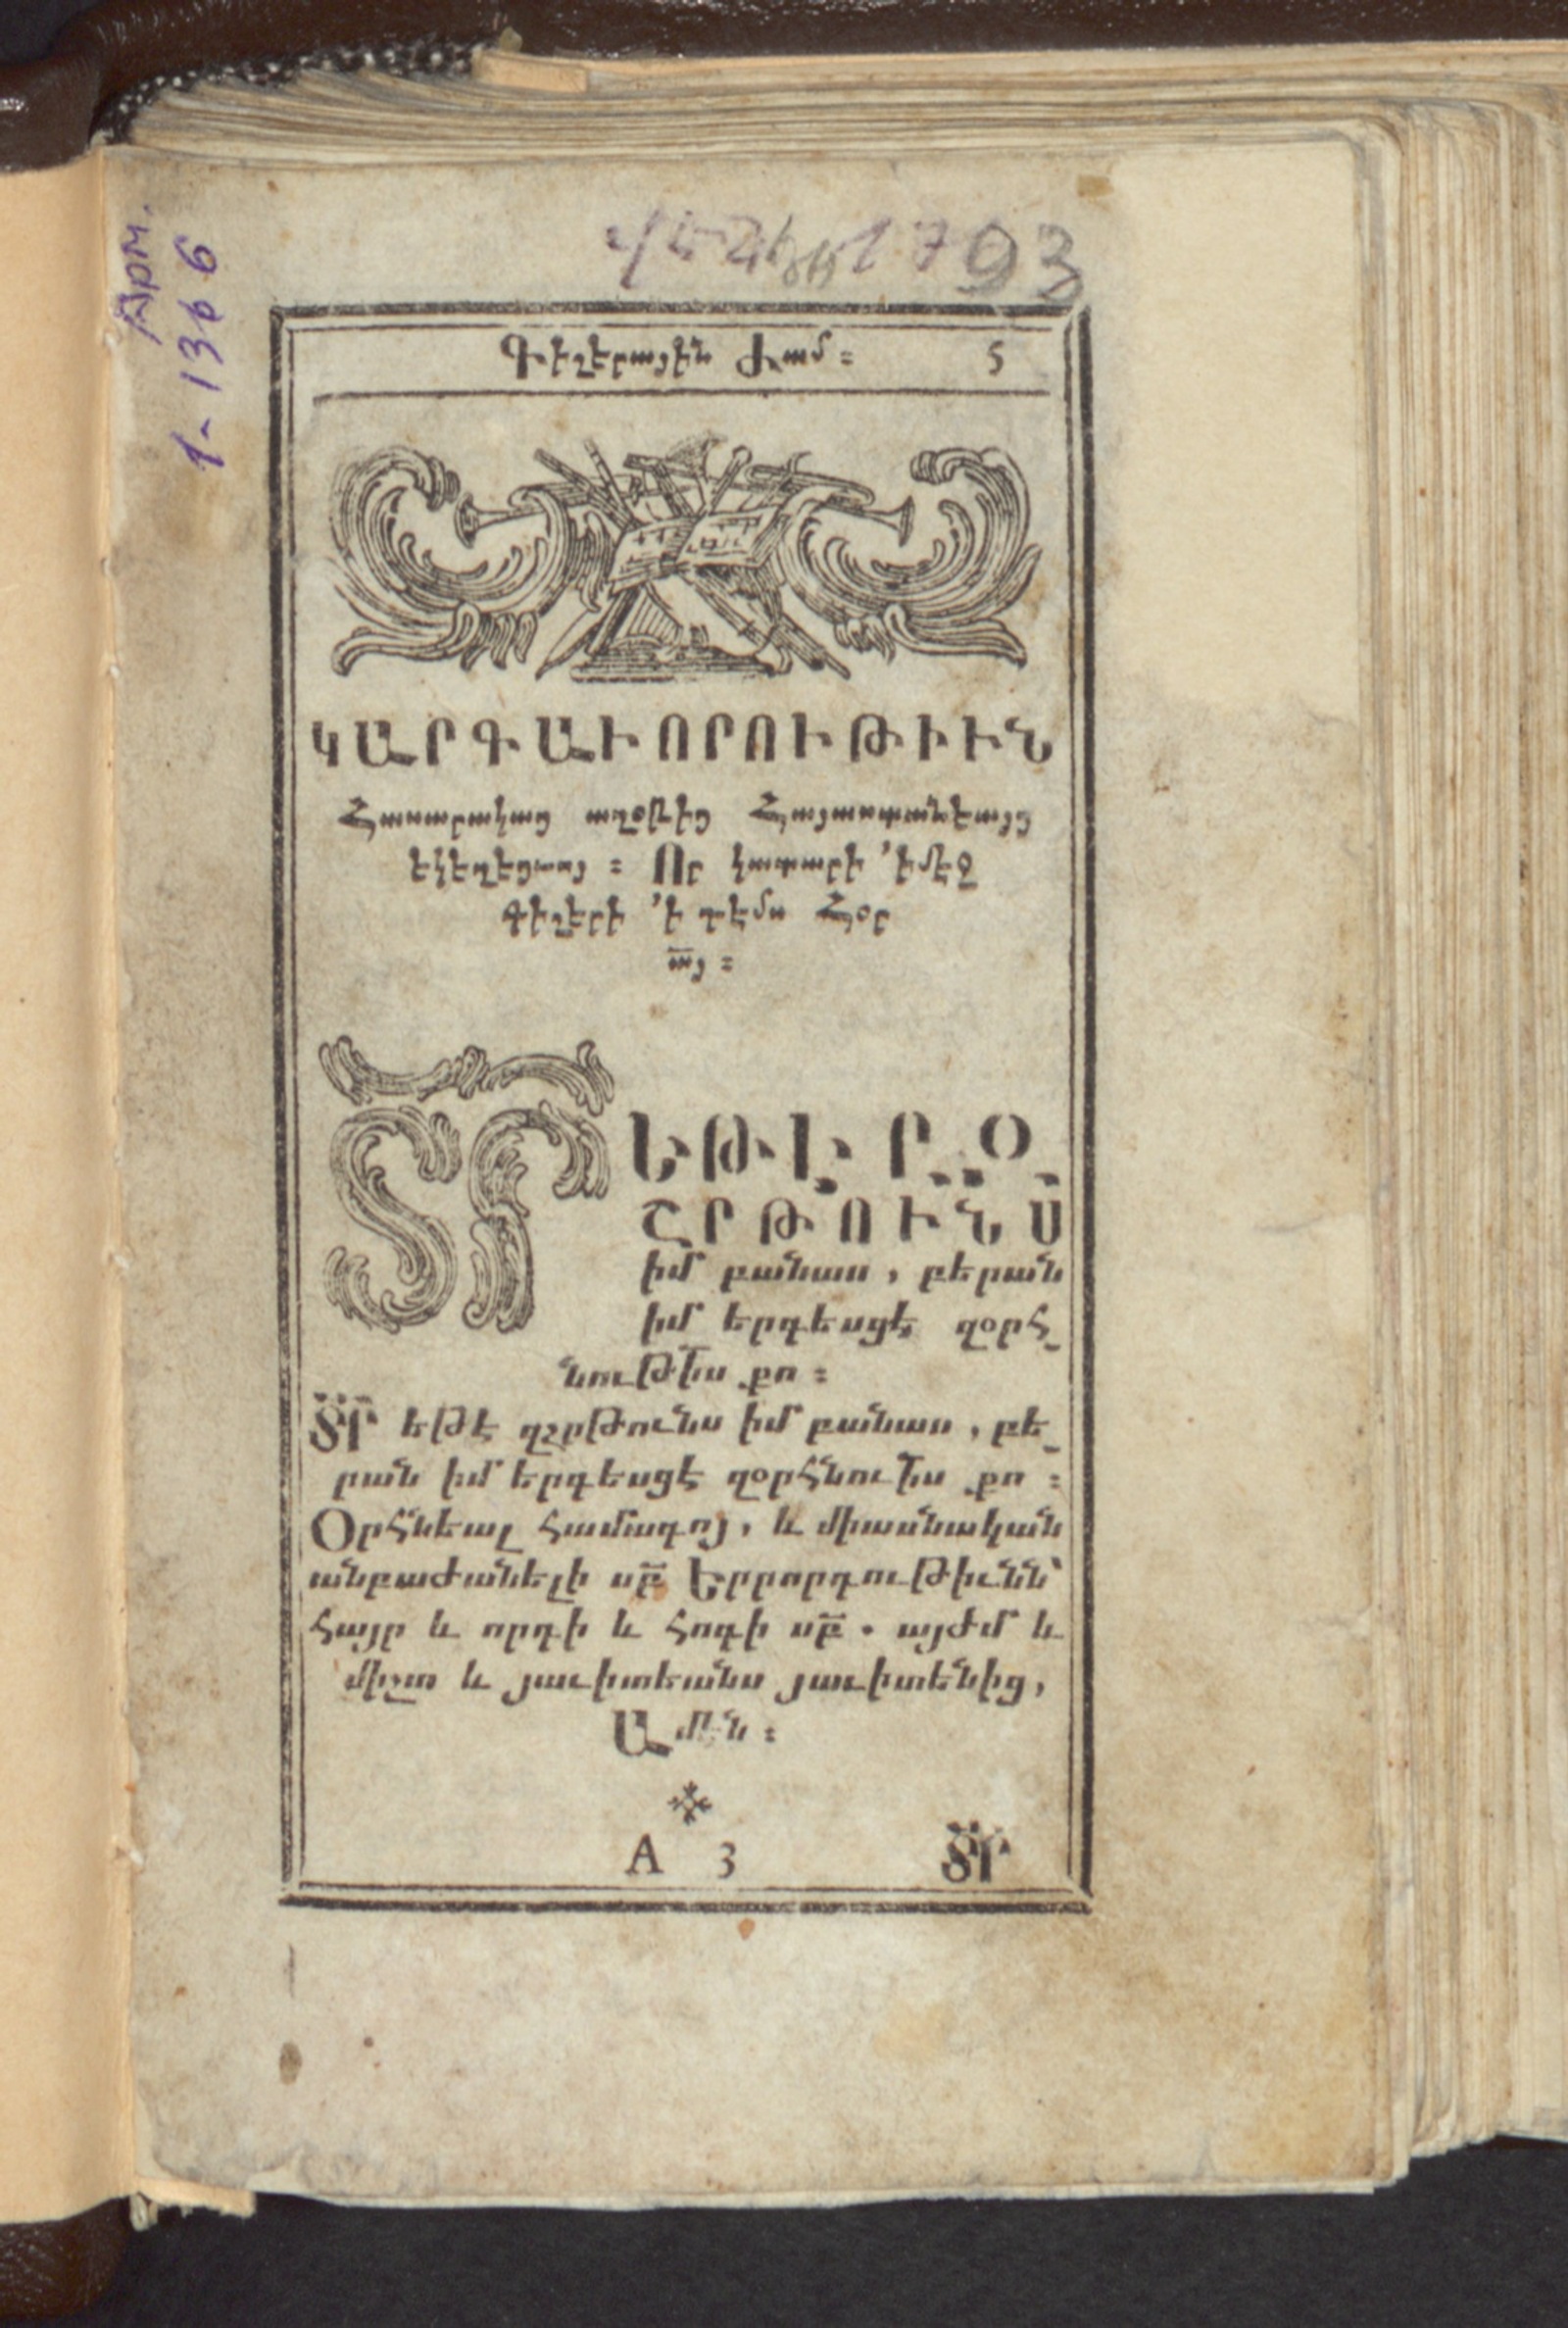 Арм.
1-1366
1793
Գիշերային Ժամ ։ 5
ԿԱՐԳԱՒՈՐՈՒԹԻՒՆ
Հասարակաց աղօթից Հայաստանեայց
եկեղեցւոյ ։ Որ կատարի ՚իմէջ
Գիշերի ՚ի դէմս Հօր
ա՟յ ։
Տ՟Ր ԵԹԷ ԶՇՐԹՈՒՆՍ
իմ բանաս , բերան
իմ երգեսցէ զօրհ֊
նութի՟ս քո ։
Տ՟Ր եթէ զշրթունս իմ բանաս , բե֊
րան իմ երգեսցէ զօրհնուի՟ս քո ։
Օրհնեալ համագոյ , և միասնական
անբաժանելի ս՟բ Երրորդութիւնն՝
հայր և որդի և հոգի ս՟բ . այժմ և
միշտ և յաւիտեանս յաւիտենից ,
Ամէն ։
A 3 Տ՟Ր